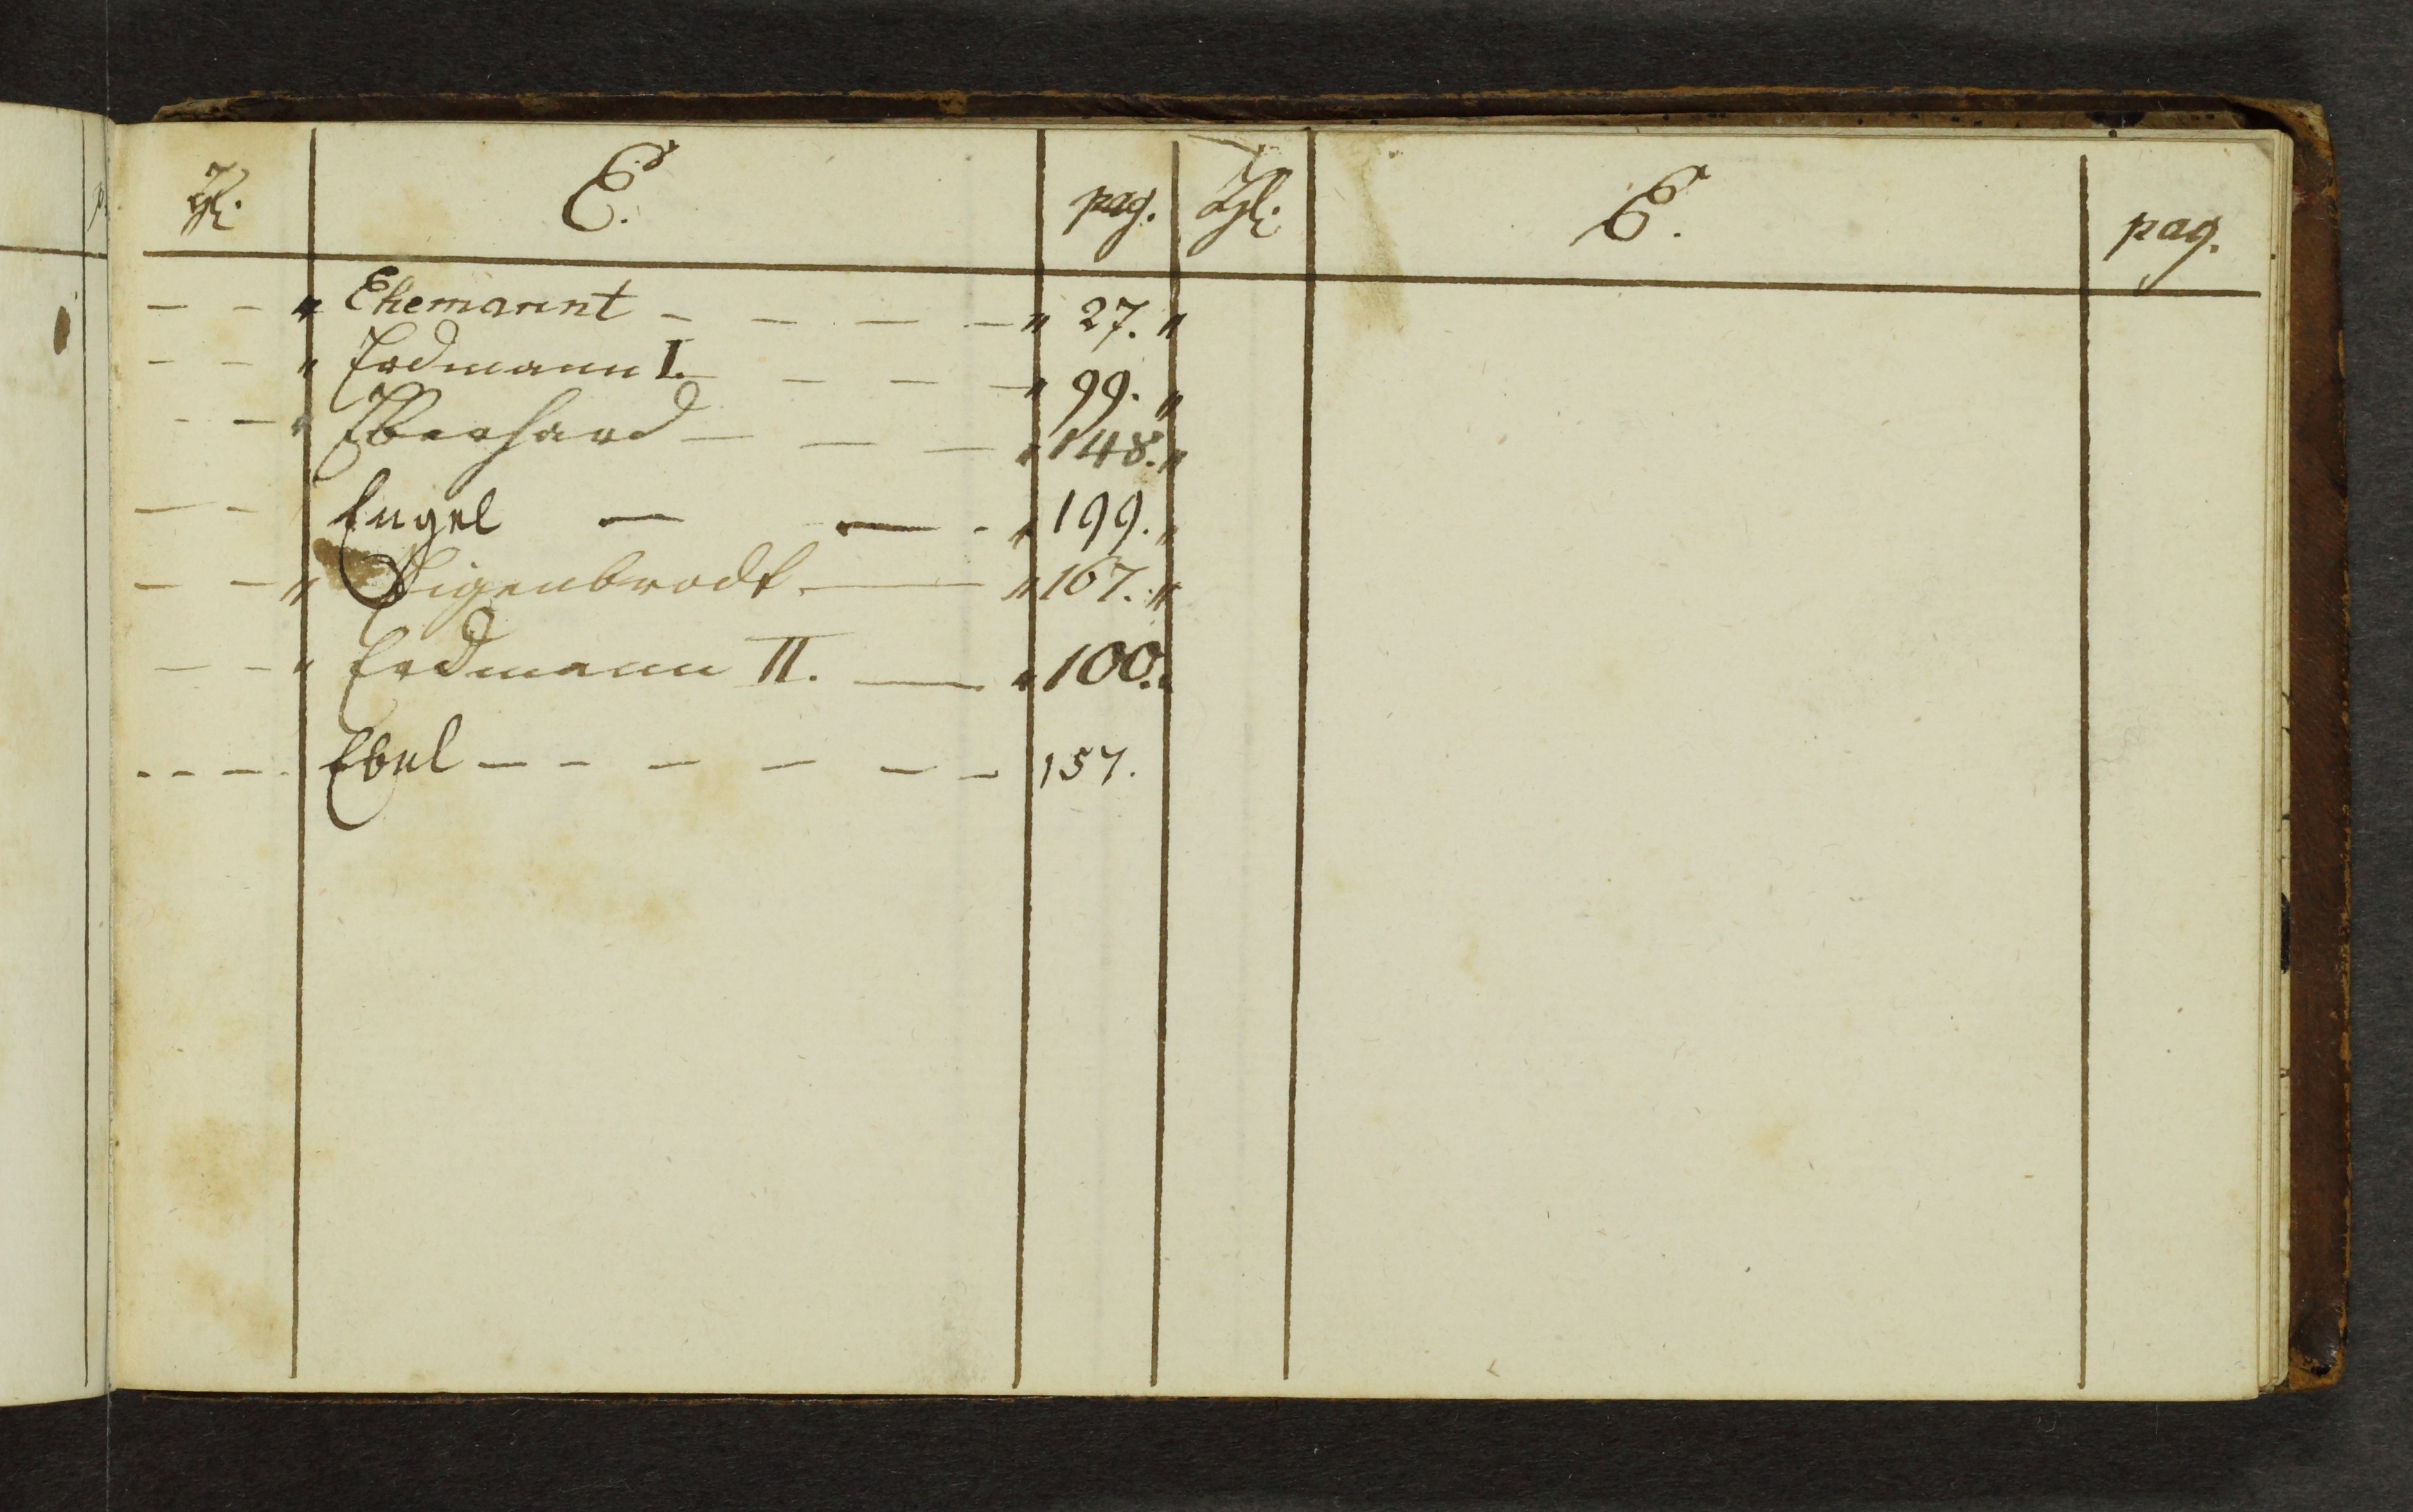 E. pag. E. pag.
– – " Ehemannt – – – – " 27. "
– – " Erdmann I. – – – " 99. "
– – " Eberhard – – – " 148. "
– – Engel – – - " 199. "
– – " Eigenbrodt – " 167. "
– – " Erdmann II. – " 100. "
- - – - Ebel – – – – – – 157.